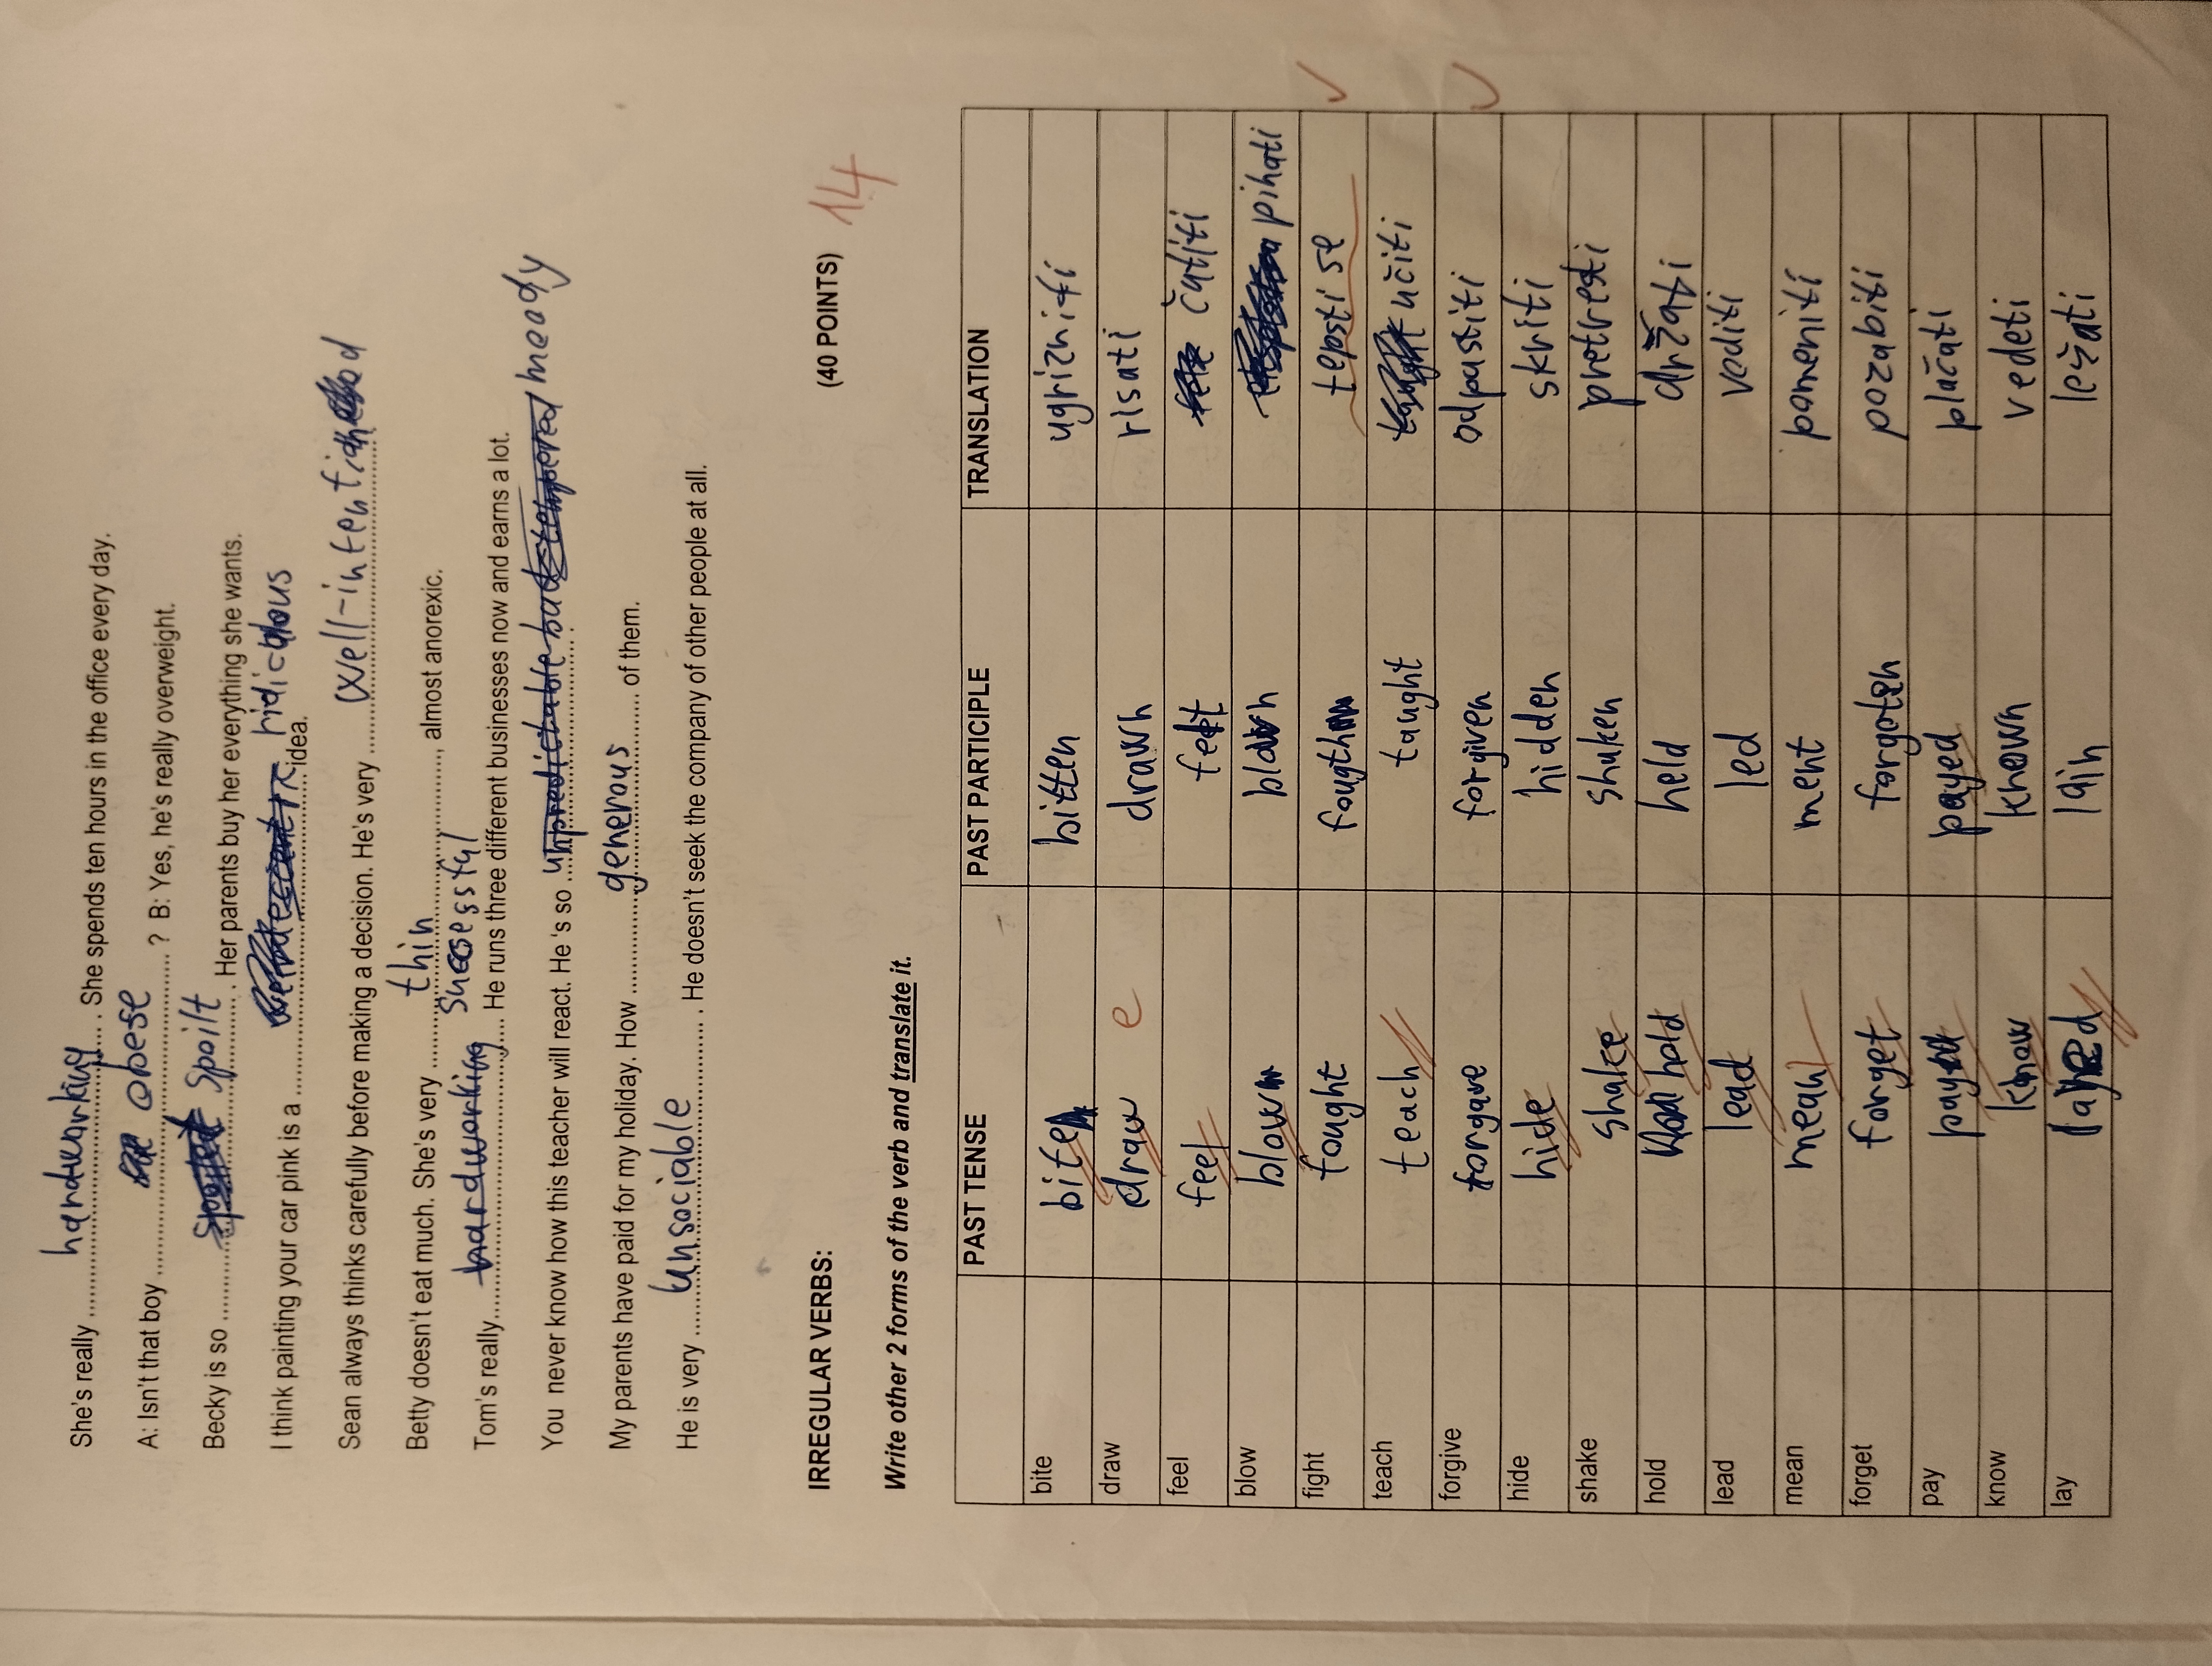 She's really hardworking. She spends ten hours in the office every day.
A: Isn't that boy obese ? B: Yes, he's really overweight.
Becky is so spoilt. Her parents buy her everything she wants.
I think painting your car pink is a ridiculous idea.
Sean always thinks carefully before making a decision. He's very well-intentioned
Betty doesn't eat much. She's very thin, almost anorexic.
Tom's really hardworking successful. He runs three different businesses now and earns a lot.
You never know how this teacher will react. He 's so unpredictable bad-tempered moody
My parents have paid for my holiday. How generous of them.
He is very unsociable. He doesn't seek the company of other people at all.
IRREGULAR VERBS: (40 POINTS) 14
Write other 2 forms of the verb and translate it.
PAST TENSE PAST PARTICIPLE TRANSLATION
bite bite bitten ugrizniti
draw draw e drawn risati
feel feel felt čutiti
blow blow blown pihati
fight fought fougth tepsti se
teach teach taught učiti
forgive forgave forgiven odpustiti
hide hide hidden skriti
shake shake shaken pretresti
hold hold held držati
lead lead led voditi
mean mean ment pomeniti
forget forget forgoten pozabiti
pay payed payed plačati
know know known vedeti
lay layed lain ležati